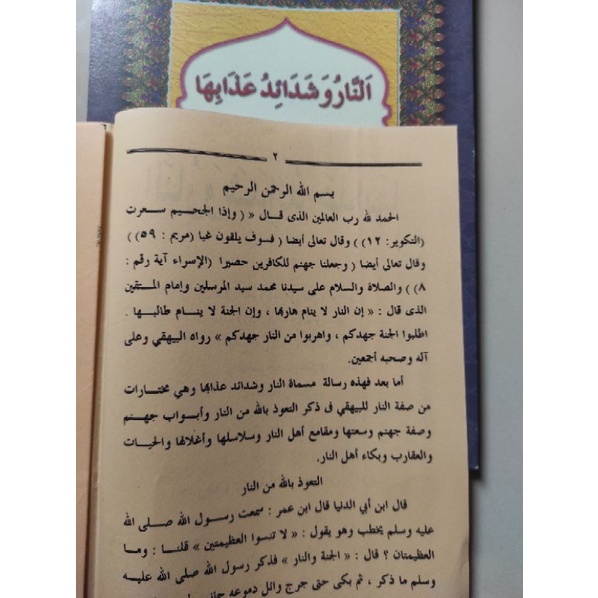 اَلنَّارُ وَشَدَائِدُ عَذَابِهَا
٢
بسم الله الرحمن الرحيم
الحمد لله رب العالمين الذى قال « ( وإذا الجحيم سعرت
(التكوير: ١٢)) وقال تعالى أيضا ( فسوف يلقون غيا (مريم : ٥٩))
وقال تعالى أيضا ( وجعلنا جهنم للكافرين حصيرا (الإسراء آية رقم :
٨)) والصلاة والسلام على سيدنا محمد سيد المرسلين وإمام المتقين
الذى قال : « إن النار لا ينام هاربها ، وإن الجنة لا ينام طالبها .
اطلبوا الجنة جهدكم ، واهربوا من النار جهدكم » رواه البيهقي وعلى
آله وصحبه أجمعين.
أما بعد فهذه رسالة مسماة النار وشدائد عذابها وهي مختارات
من صفة النار للبيهقي فى ذكر التعوذ بالله من النار وأبواب جهنم
وصفة جهنم وسعتها ومقامع أهل النار وسلاسلها وأغلالها والحيات
والعقارب وبكاء أهل النار.
التعوذ بالله من النار
قال ابن أبي الدنيا قال ابن عمر : سمعت رسول الله صلى الله
عليه وسلم يخطب وهو يقول : « لا تنسوا العظيمتين » قلنا : وما
العظيمتان ؟ قال : « الجنة والنار » فذكر رسول الله صلى الله عليه
وسلم ما ذكر ، ثم بكى حتى جرج وائل دموعه